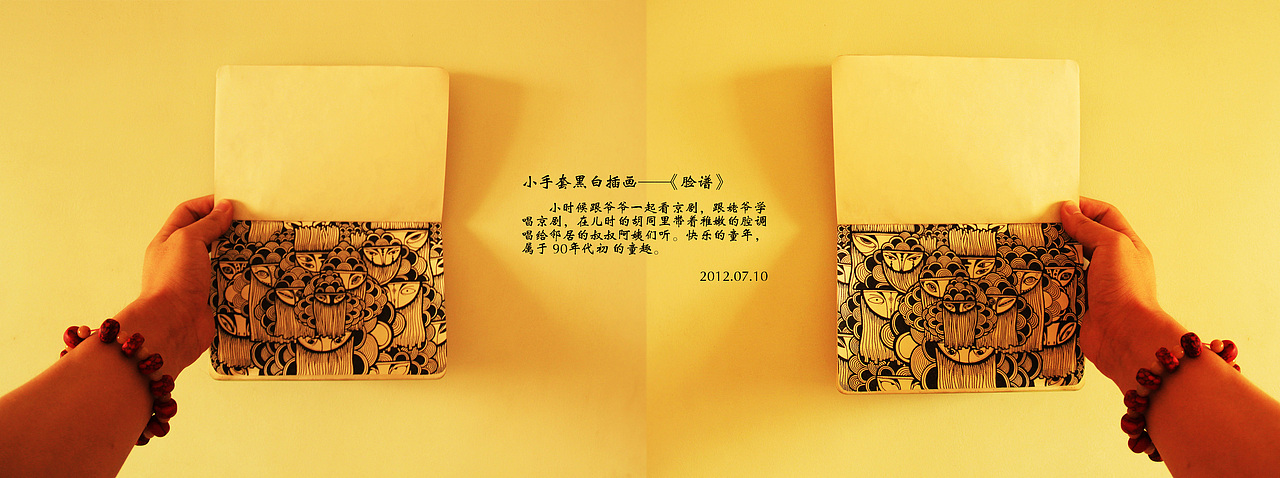 小手套黑白插画——《脸谱》
小时候跟爷爷一起看京剧，跟姥爷学
唱京剧，在儿时的胡同里带着稚嫩的腔调
唱给邻居的叔叔阿姨们听。快乐的童年，
属于 90年代初 的童趣。
2012.07.10